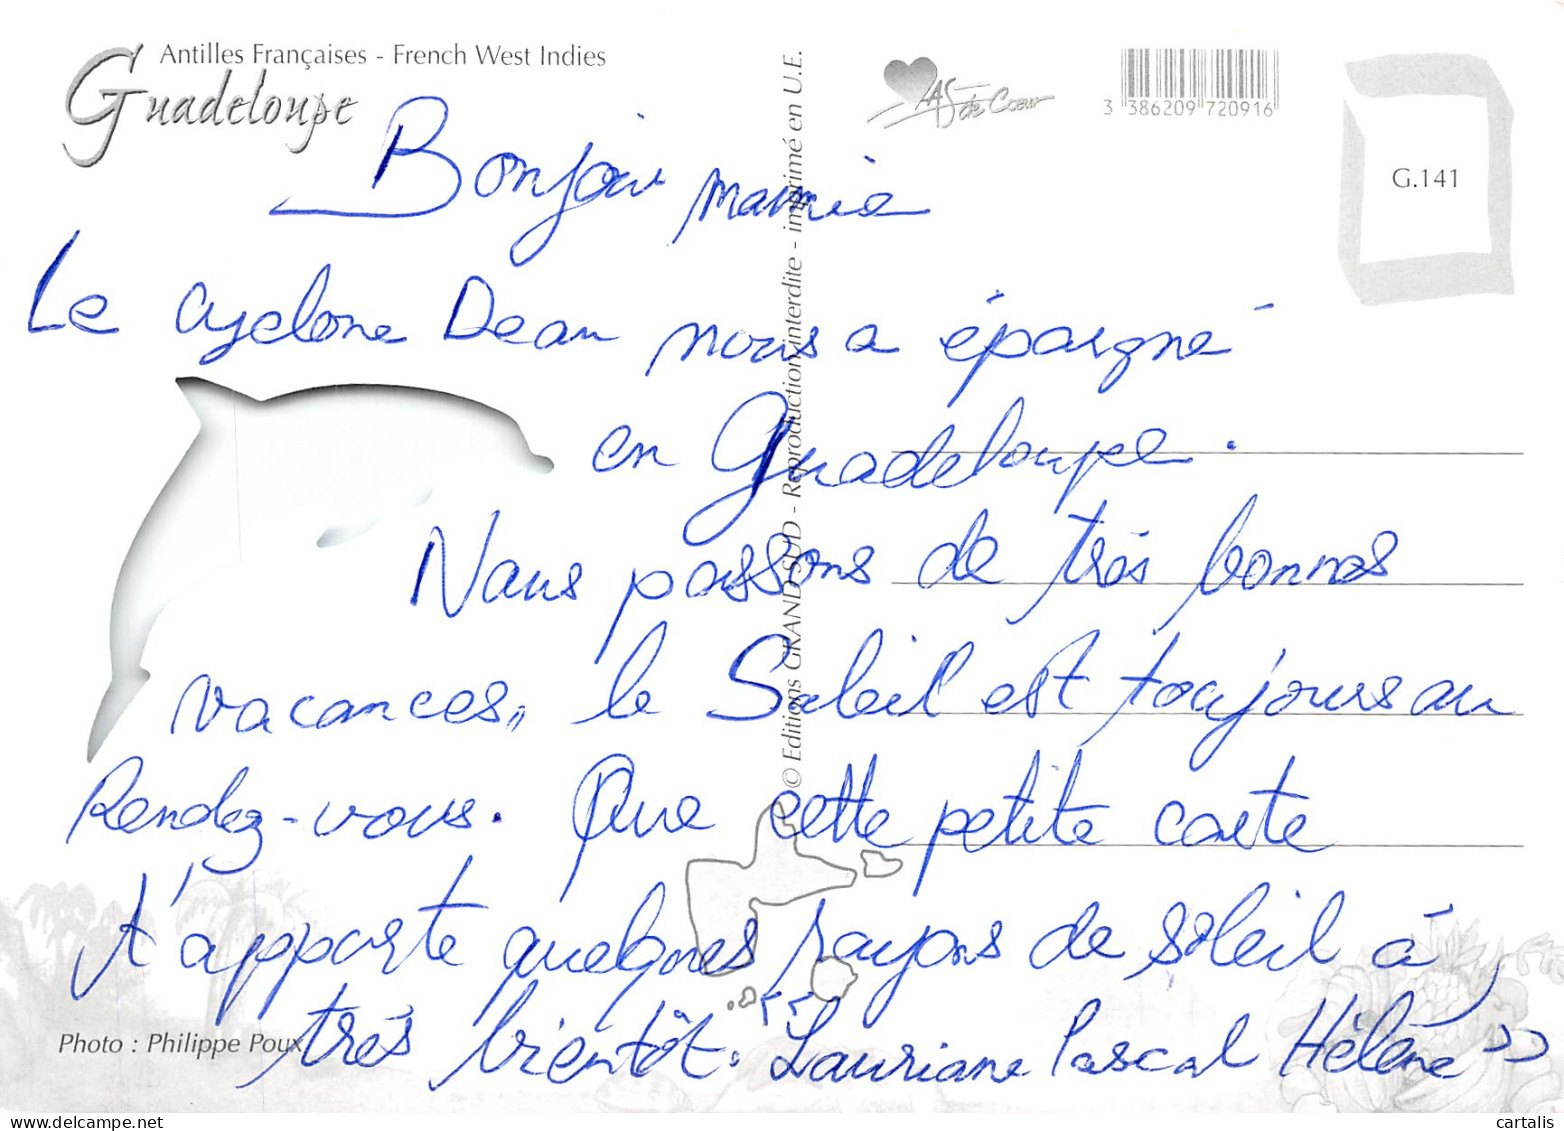 Antilles Françaises - French West Indies
Guadeloupe
As de Cœur
3 386209 720916
G.141
Bonjour mamie
Le cyclone Dean nous a épargné
en Guadeloupe.
Nous passons de très bonnes
vacances,, le Soleil est toujours au
Rendez-vous. Que cette petite carte
t'apporte quelques rayons de soleil à
très bientôt. "Lauriane Pascal Hélène"
© Editions GRAND SUD - Reproduction interdite - imprimé en U.E.
Photo : Philippe Poux
cartalis